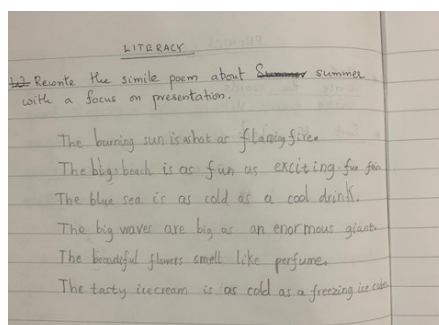 LITERACY
L2 Rewrite the simile poem about Summer summer
with a focus on presentation.
The burning sun is as hot as flaming fire.
The big beach is as fun as exciting fun fair.
The blue sea is as cold as a cool drink.
The big waves are big as an enormous giant.
The beautiful flowers smell like perfume.
The tasty icecream is as cold as a freezing ice cube.